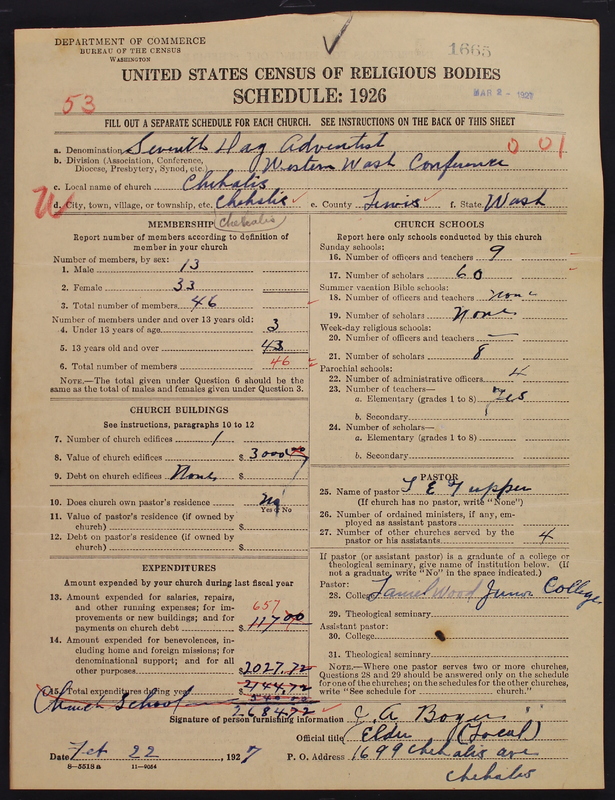 DEPARTMENT OF COMMERCE
BUREAU OF THE CENSUS
WASHINGTON
1665
UNITED STATES CENSUS OF RELIGIOUS BODIES
SCHEDULE: 1926
MAR 2 - 1927
53
FILL OUT A SEPARATE SCHEDULE FOR EACH CHURCH. SEE INSTRUCTIONS ON THE BACK OF THIS SHEET
a. Denomination Seventh Day Adventist
0 01
b. Division (Association, Conference, Diocese, Presbytery, Synod, etc.) Western Wash Conference
c. Local name of church Chehalis
W
d. City, town, village, or township, etc. Chehalis e. County Lewis f. State Wash
MEMBERSHIP Chehalis
Report number of members according to definition of
member in your church
Number of members, by sex:
1. Male 13
2. Female 33
3. Total number of members 46
Number of members under and over 13 years old:
4. Under 13 years of age 3
5. 13 years old and over 43
6. Total number of members 46
NOTE.—The total given under Question 6 should be the
same as the total of males and females given under Question 3.
CHURCH BUILDINGS
See instructions, paragraphs 10 to 12
7. Number of church edifices 1
8. Value of church edifices $ 3000.00
9. Debt on church edifices None $
10. Does church own pastor's residence No
Yes or No
11. Value of pastor's residence (if owned by
church) $
12. Debt on pastor's residence (if owned by
church) $
EXPENDITURES
Amount expended by your church during last fiscal year
13. Amount expended for salaries, repairs,
and other running expenses; for im-
provements or new buildings; and for
payments on church debt $ 117.00
657
14. Amount expended for benevolences, in-
cluding home and foreign missions; for
denominational support; and for all
other purposes $ 2027.72
15. Total expenditures during year $ 2144.72
Church School 540.00
2684.72
CHURCH SCHOOLS
Report here only schools conducted by this church
Sunday schools:
16. Number of officers and teachers 9
17. Number of scholars 60
Summer vacation Bible schools:
18. Number of officers and teachers none
19. Number of scholars None
Week-day religious schools:
20. Number of officers and teachers —
21. Number of scholars 8
Parochial schools:
22. Number of administrative officers 4
23. Number of teachers—
a. Elementary (grades 1 to 8) Yes
b. Secondary
24. Number of scholars—
a. Elementary (grades 1 to 8)
b. Secondary
PASTOR
25. Name of pastor T E Tupper
(If church has no pastor, write "None")
26. Number of ordained ministers, if any, em-
ployed as assistant pastors
27. Number of other churches served by the
pastor or his assistants 4
If pastor (or assistant pastor) is a graduate of a college or
theological seminary, give name of institution below. (If
not a graduate, write "No" in the space indicated.)
Pastor:
28. College Laurelwood Junior College
29. Theological seminary
Assistant pastor:
30. College
31. Theological seminary
NOTE.—Where one pastor serves two or more churches,
Questions 28 and 29 should be answered only on the schedule
for one of the churches; on the schedules for the other churches,
write "See schedule for church."
Signature of person furnishing information C. A
Official title Elder (Local)
Date Feb 22, 1927 P. O. Address 1699 Chehalis ave
Chehalis
8—5518a 11—9064